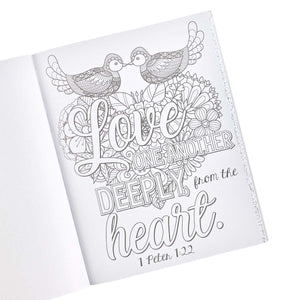 Love
ONE ANOTHER
DEEPLY, from the
heart.
1 Peter 1:22